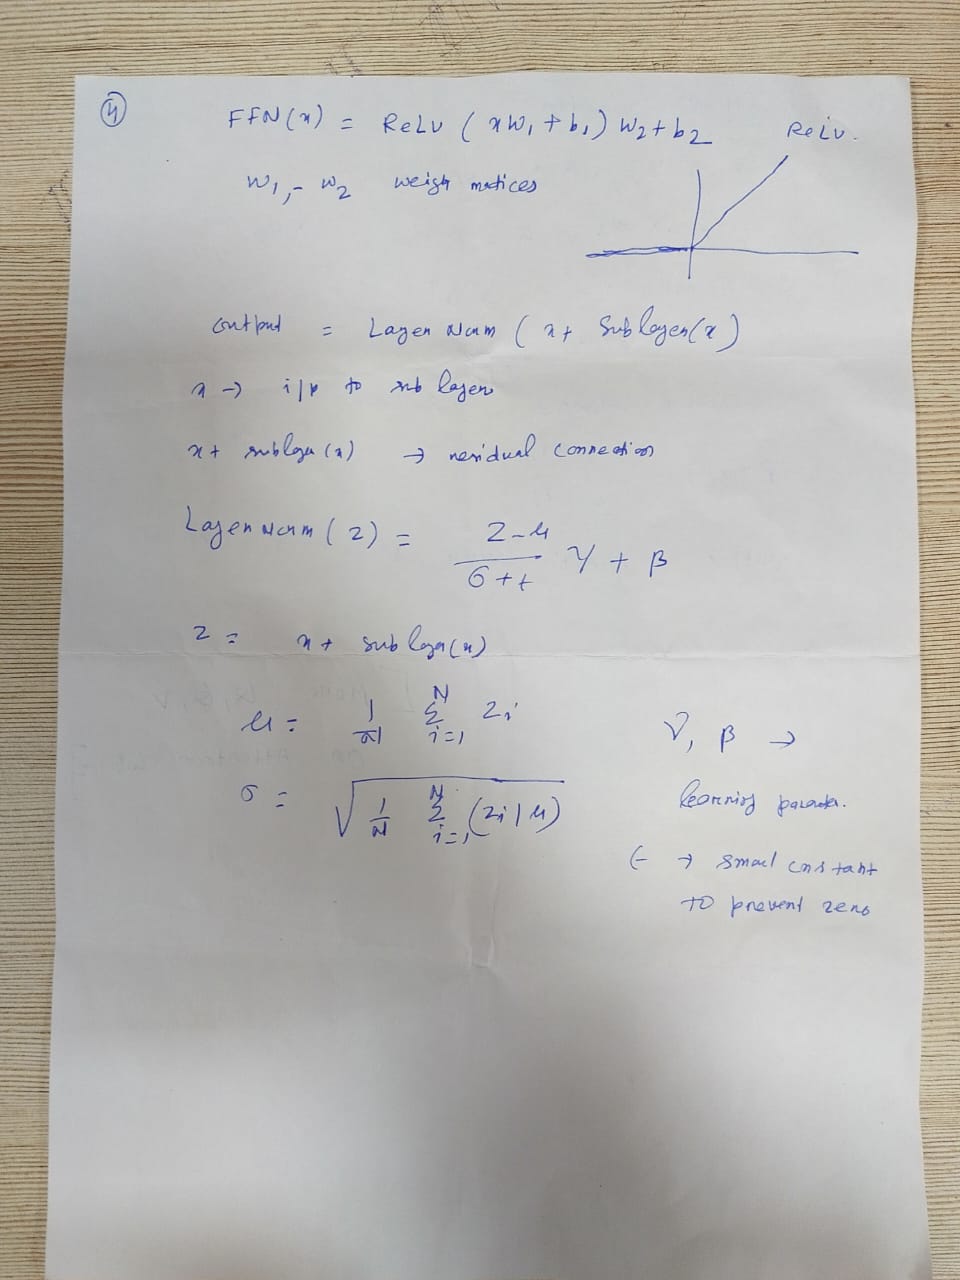 4
FFN(x) = ReLU ( xW₁ + b₁ ) W₂ + b₂
ReLU.
W₁,- W₂ weigh matices
output = Layer Norm ( x + Sublayer(x)
x → i/p to sub layer
x + sublayer (x) → residual connection
Layer Norm ( z ) = z-μ / σ + ϵ γ + β
z = x + sub layer(x)
μ = 1/N Σ i=1 N zi
γ, β →
σ = √ 1/N Σ i=1 N (zi | μ)
learning
ϵ → small constant
to prevent zero